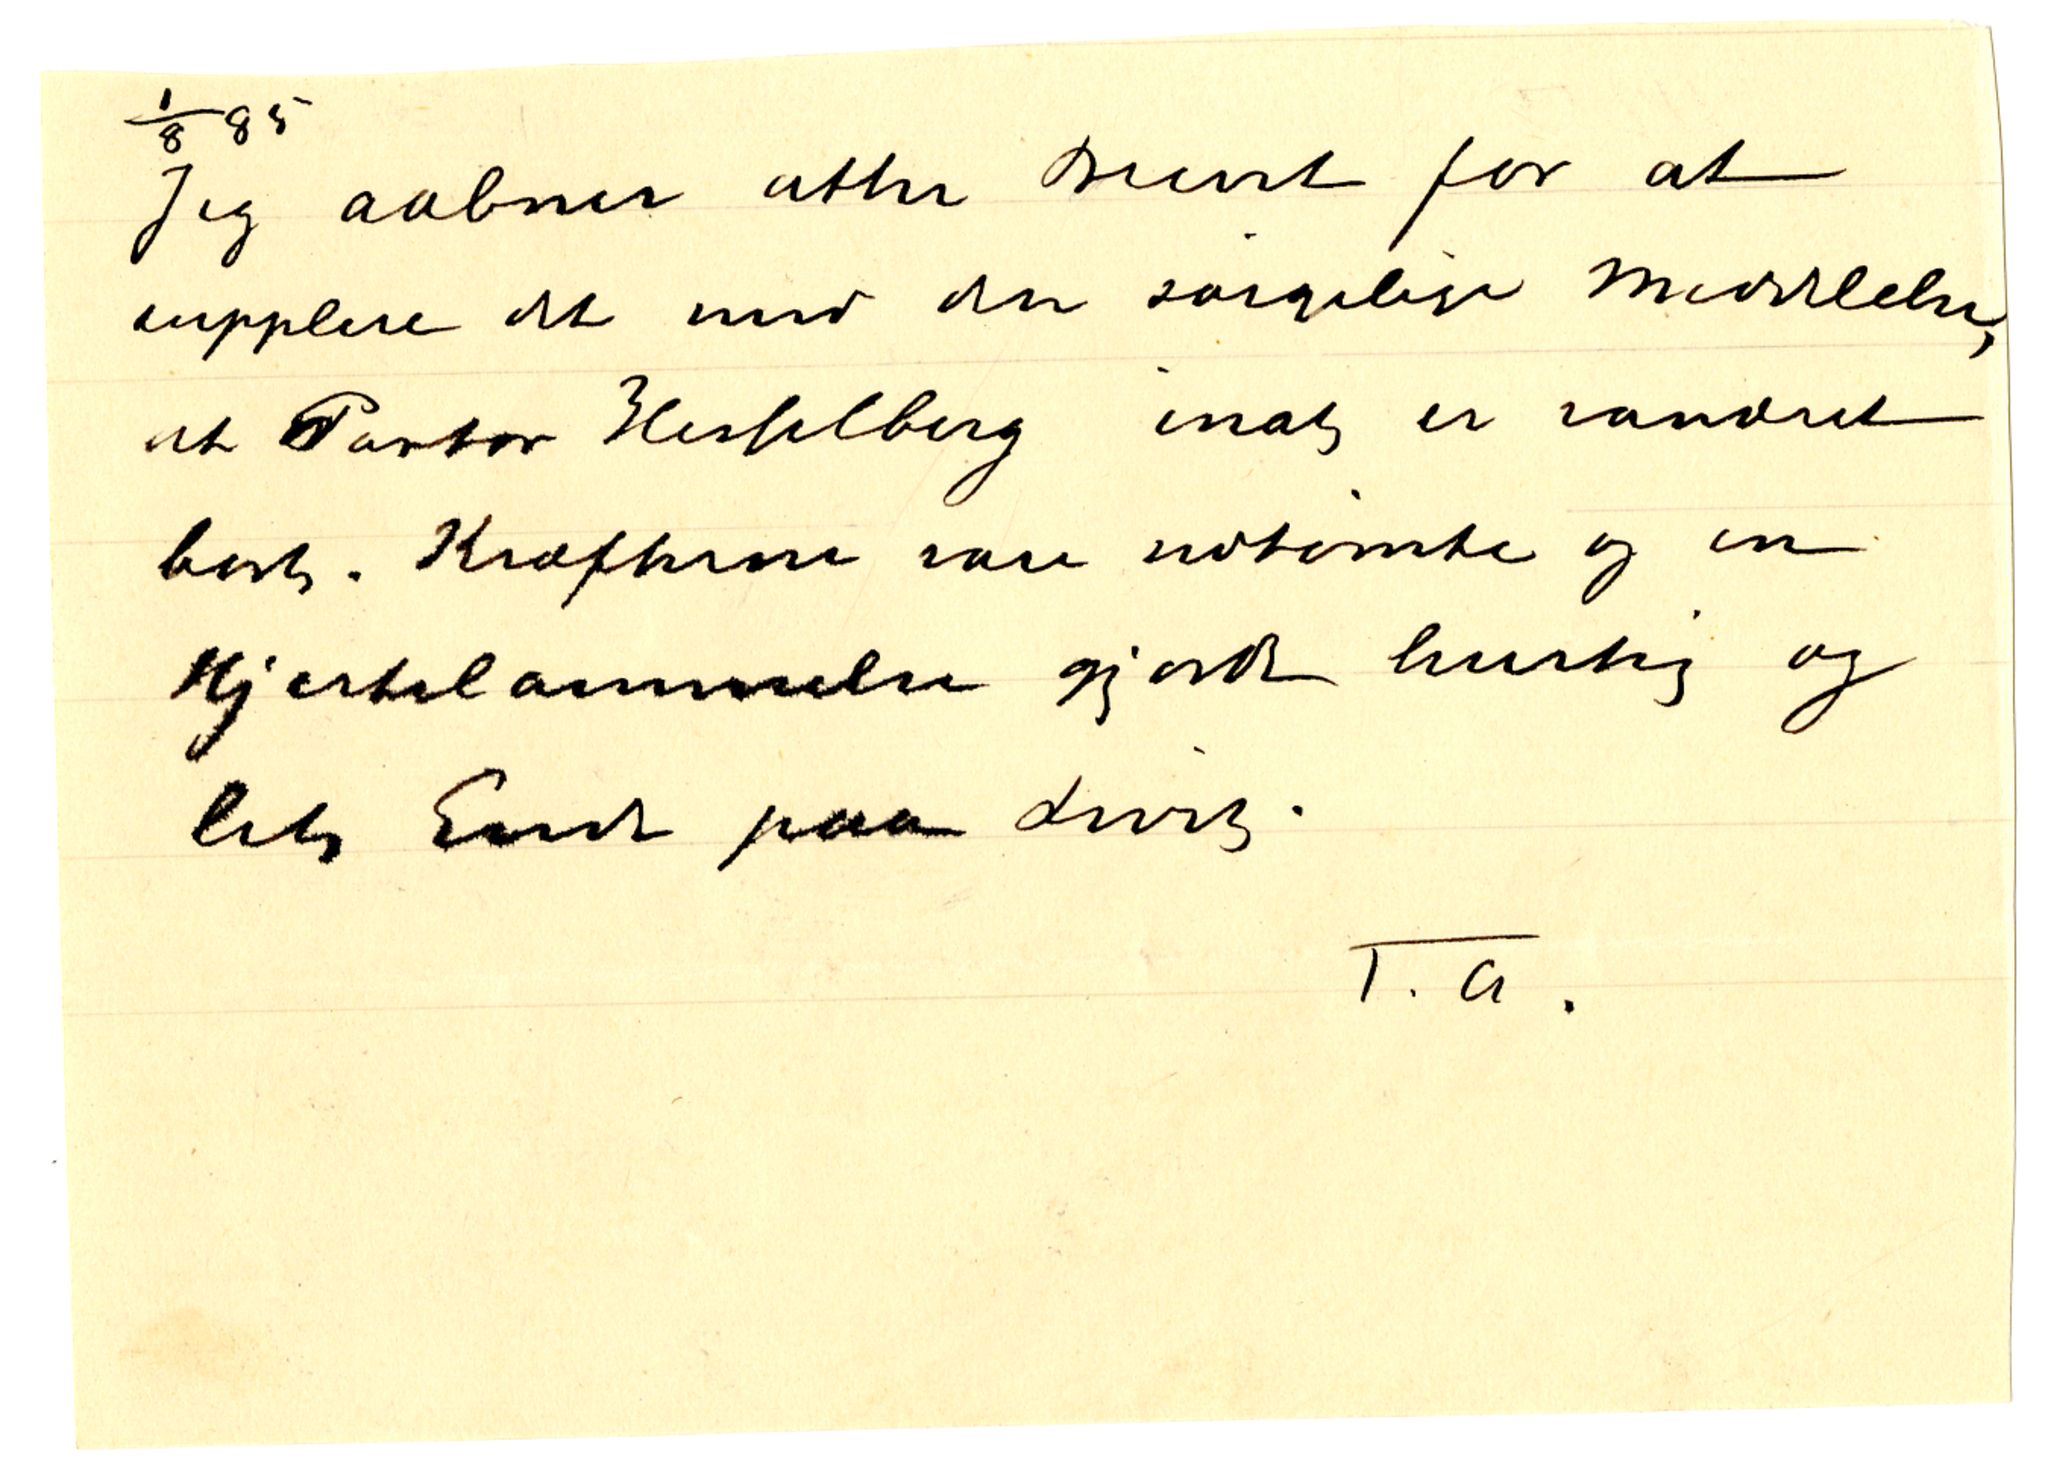 1/8 85
Jeg aabner atter Brevet for at
supplere det med den sørgelige Meddelelse,
at Pastor Hesselberg inat er vandret
bort. Kræfterne vare udtømte og en
Hjertelammelse gjorde hurtig og
let Ende paa Livet.
T. A.